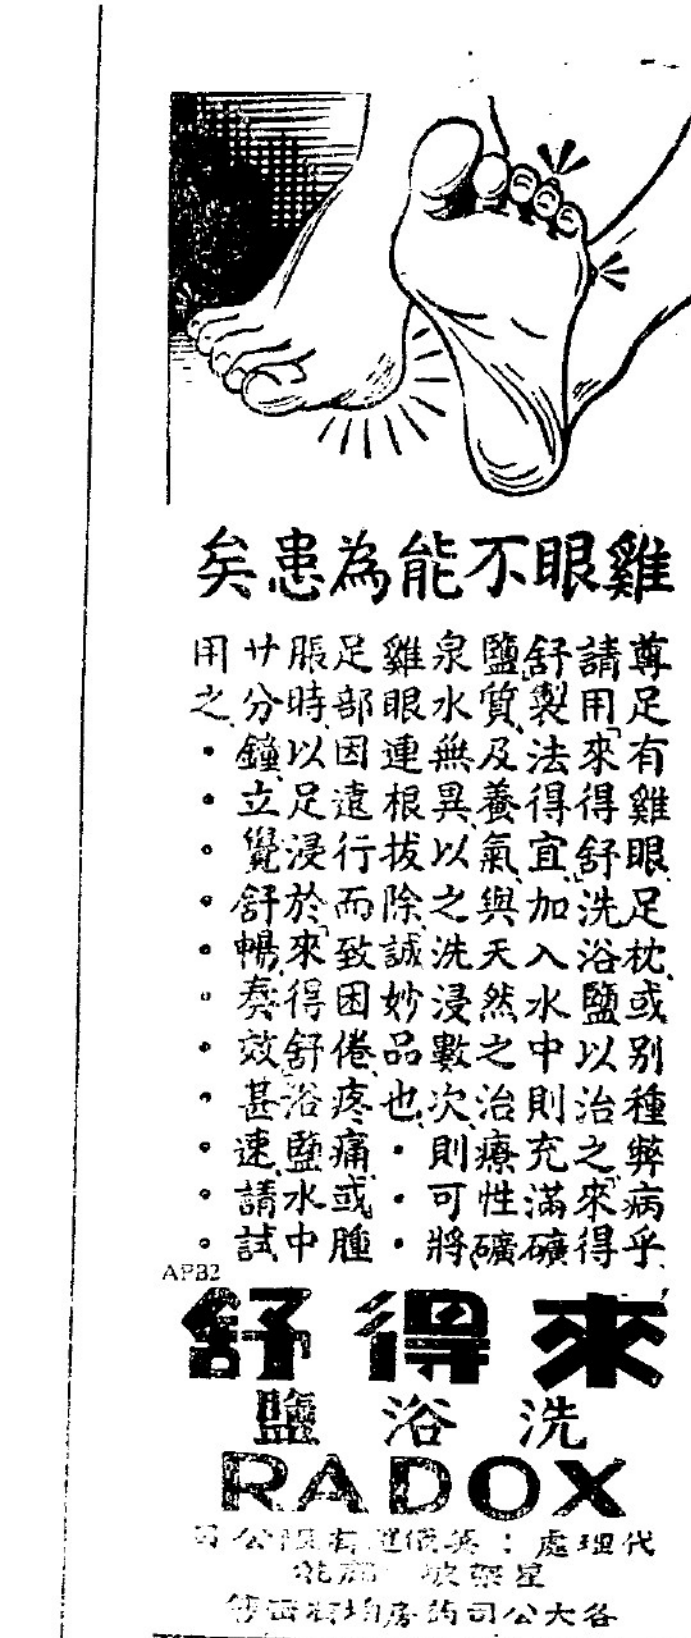 雞眼不能為患矣
尊足有雞眼、足枕、或別種弊病乎、
請用「來得舒」洗浴鹽以治之、「來得
舒」製法得宜、加入水中則充滿礦
鹽質、及養氣、與天然之治療性礦
泉水無異、以之洗浸數次、則可將
雞眼連根拔除、誠妙品也、・・・
足部因遠行而致困倦、疼痛或腫
脹時、以足浸於「來得舒」浴鹽水中
廿分鐘、立覺舒暢、奏效甚速、請試
用之、・・・・・・・・・・・
APB2
來得舒
洗浴鹽
RADOX
代理處：有限公司
星架坡
各大公司葯房均有售